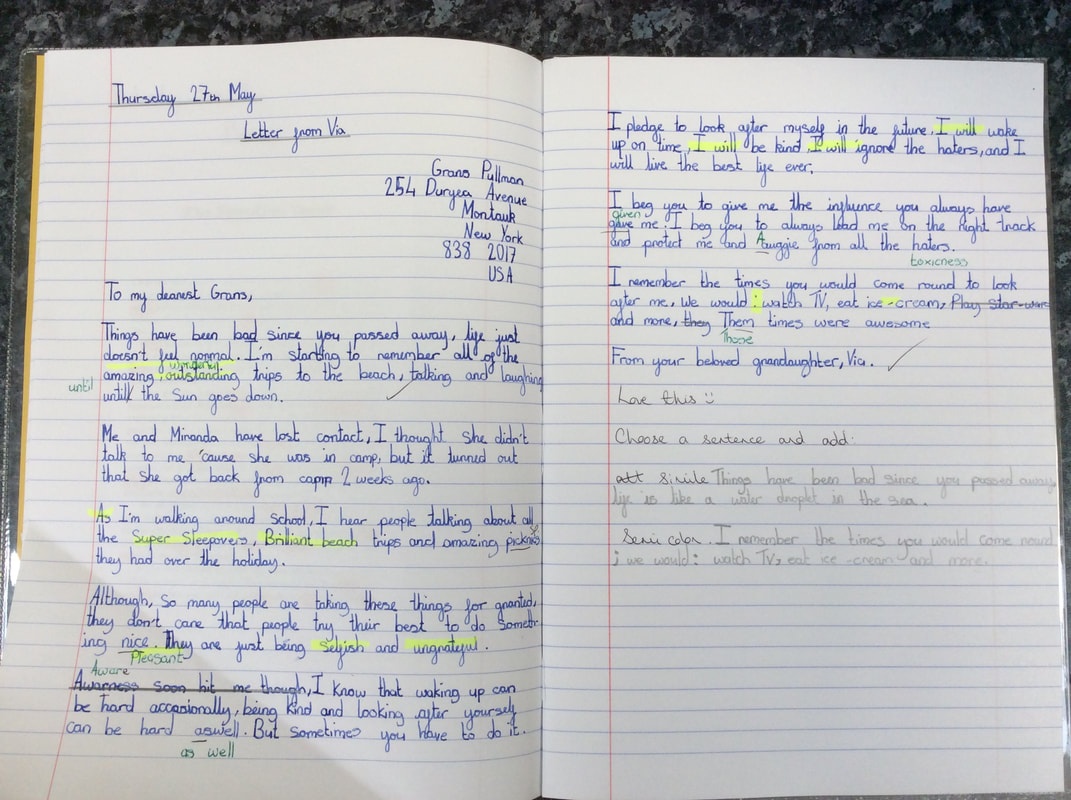 Thursday 27th May
Letter from Via
Grans Pullman
254 Duryea Avenue
Montauk
New York
838 2017
USA
To my dearest Grans,
Things have been bad since you passed away, life just
doesn't feel normal. I'm starting to remember all of the
wonderful
amazing, outstanding trips to the beach, talking and laughing
until
untill the sun goes down.
Me and Miranda have lost contact, I thought she didn't
talk to me 'cause she was in camp, but it turned out
that she got back from camp 2 weeks ago.
As I'm walking around school, I hear people talking about all
the Super Sleepovers, Brilliant beach trips and amazing picknics
they had over the holiday.
Although, so many people are taking these things for granted,
they don't care that people try their best to do someth-
ing nice. They are just being selfish and ungrateful.
Pleasant
Aware
Awarness soon hit me though, I know that waking up can
be hard accasionally, being kind and looking after yourself
can be hard aswell. But sometimes you have to do it.
as well
I pledge to look after myself in the future. I will wake
up on time, I will be kind I will ignore the haters, and I
will live the best life ever.
I beg you to give me the influence you always have
given
gave me. I beg you to always lead me on the right track
and protect me and Auggie from all the haters.
toxicness
I remember the times you would come round to look
after me. We would : watch TV, eat ice-cream, Play star-wars
and more, they Them times were awesome
Those
From your beloved grandaughter, Via.
Love this
Choose a sentence and add:
Simile Things have been bad since you passed away
life is like a water droplet in the sea.
Semi colon I remember the times you would come round
; we would: watch TV, eat ice-cream and more.